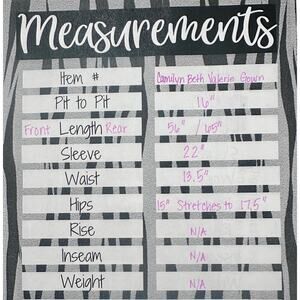 Measurements
Item # Camilyn Beth Valerie Gown
Pit to Pit 16"
Front Length Rear 56" / 65"
Sleeve 22"
Waist 13.5"
Hips 15" Stretches to 17.5"
Rise N/A
Inseam N/A
Weight N/A